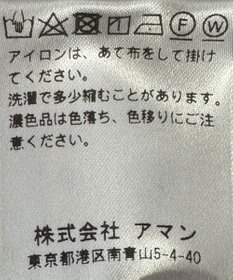 アイロンは、あて布をして掛け
てください。
洗濯で多少縮むことがあります。
濃色品は色落ち、色移りにご注
意ください。
株式会社 アマン
東京都港区南青山5-4-40